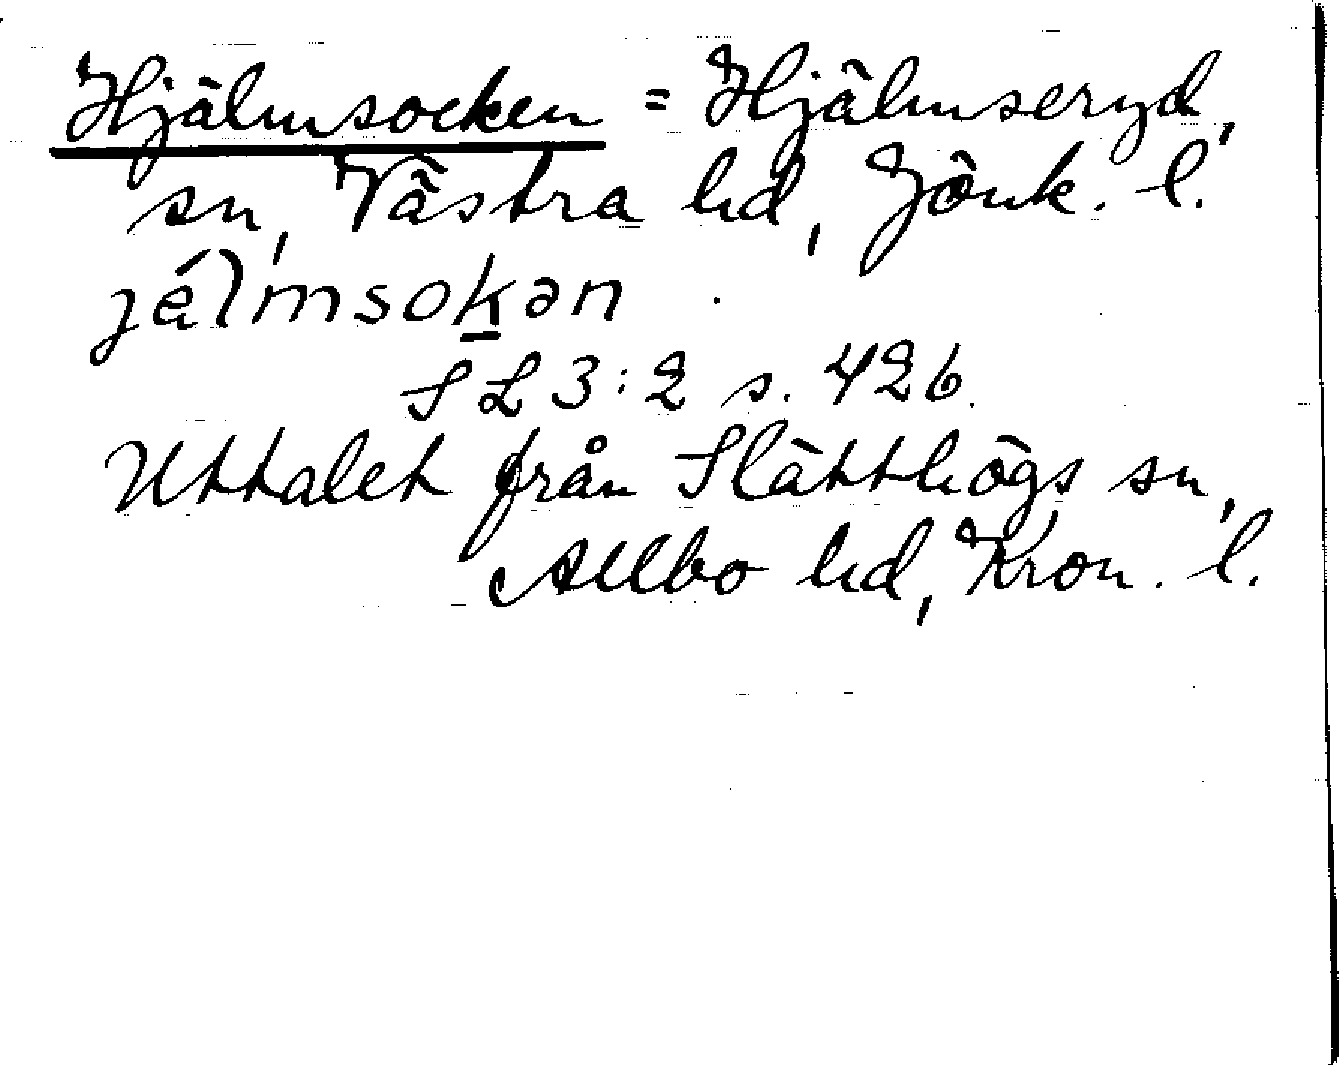 Hjälmsocken = Hjälmseryd,
sn, Västra hd, Jönk. l.
jálmsokən
SL 3:2 s. 426.
Uttalet från Slätthögs sn,
Allbo hd, Kron. l.